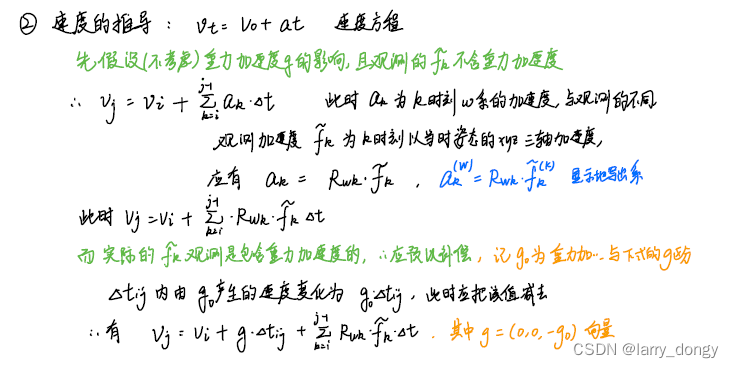 ② 速度的推导: vt = v0 + at 速度方程
先假设(不考虑)重力加速度g的影响,且观测的f̃k不含重力加速度
∴ vj = vi + Σ_{k=i}^{j-1} ak·Δt 此时 ak 为k时刻w系的加速度,与观测的不同
观测加速度 f̃k 为k时刻以当时姿态的xyz三轴加速度,
应有 ak = Rwk·f̃k , ak^(W) = Rwk·f̃k^(k) 显示地导出系
此时 vj = vi + Σ_{k=i}^{j-1}·Rwk·f̃k Δt
而实际的f̃k观测是包含重力加速度的,∴应予以补偿,记g0为重力加… 与下式的g区分
Δtij 内由g0产生的速度变化为 g0·Δtij,此时应把该值减去
∴有 vj = vi + g·Δtij + Σ_{k=i}^{j-1} Rwk·f̃k·Δt . 其中 g = (0,0,-g0) 向量
CSDN @larry_dongy